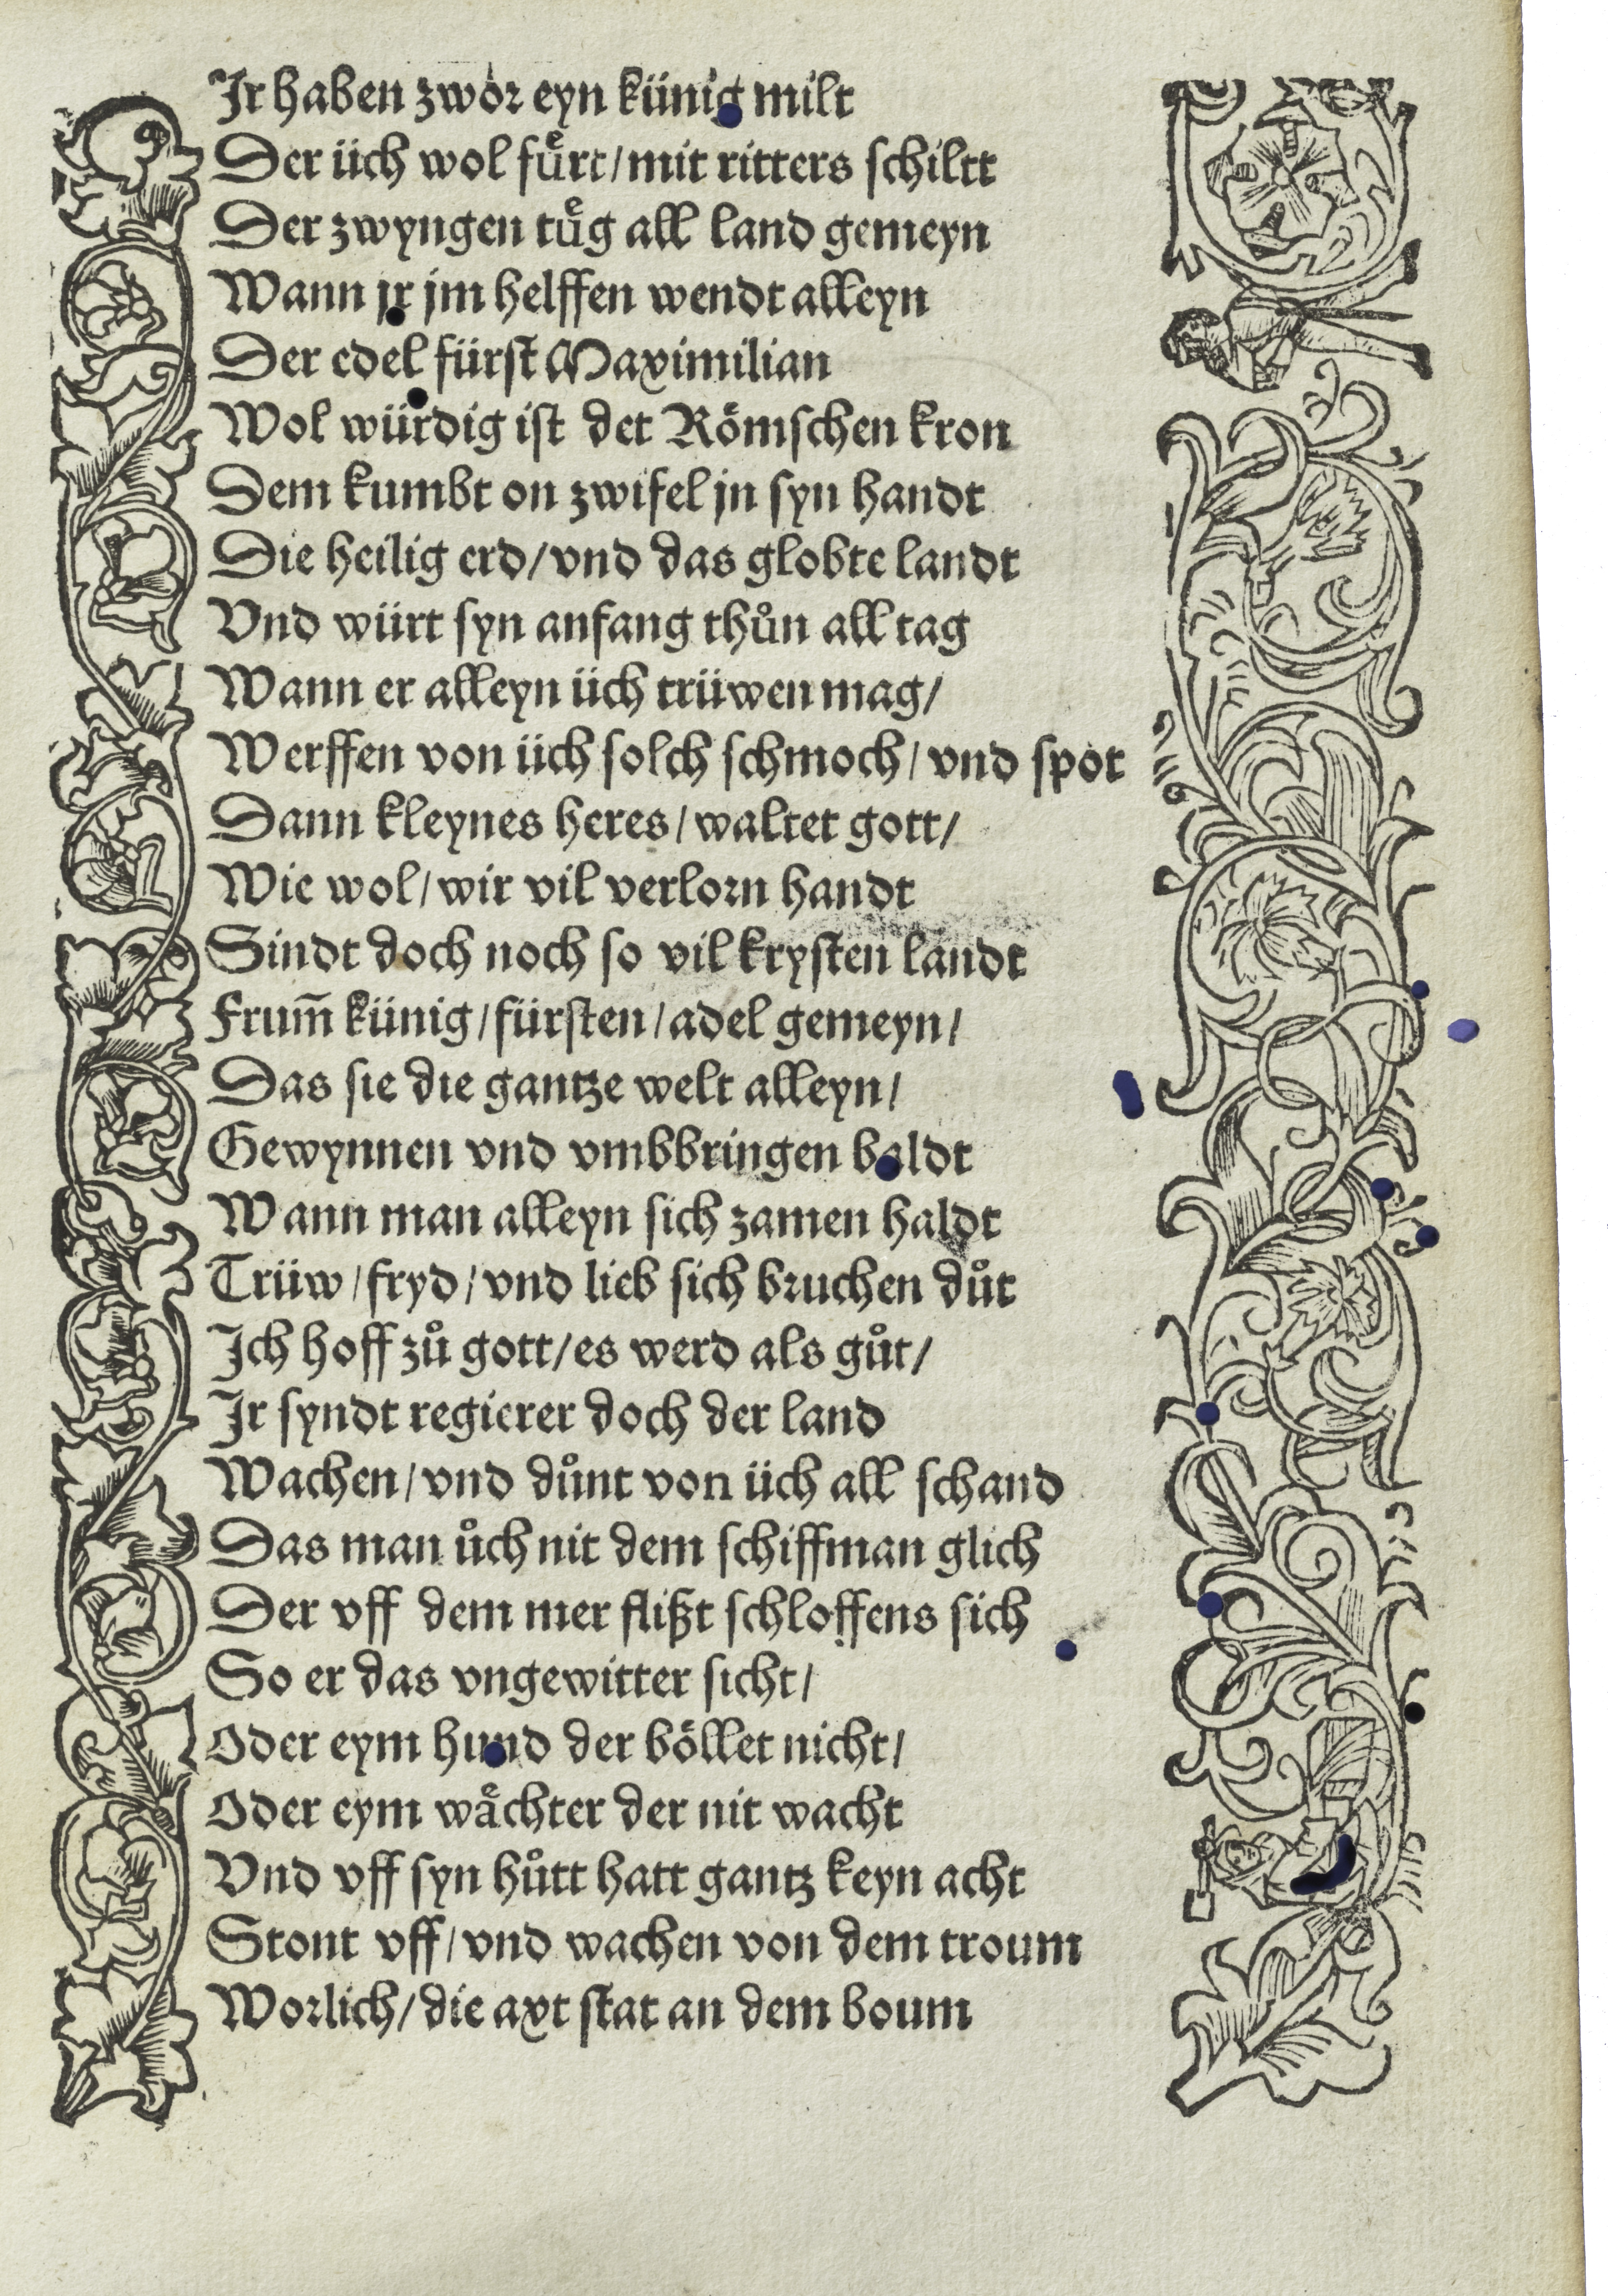 Jr haben zwor eyn künig milt
Der üch wol fuͤrt/mit ritters schiltt
Der zwyngen tuͤg all land gemeyn
Wann jr jm helffen wendt alleyn
Der edel fürst Maximilian
Wol würdig ist det Roͤmschen kron
Dem kumbt on zwifel jn syn handt
Die heilig erd/vnd das globte landt
Vnd würt syn anfang thuͦn all tag
Wann er alleyn üch trüwen mag/
Werffen von üch solch schmoch/vnd spot
Dann kleynes heres/waltet gott/
Wie wol/wir vil verlorn handt
Sindt doch noch so vil krysten landt
Frum̄ künig/fürsten/adel gemeyn/
Das sie die gantze welt alleyn/
Gewynnen vnd vmbbringen baldt
Wann man alleyn sich zamen haldt
Trüw/fryd/vnd lieb sich bruchen duͦt
Ich hoff zuͦ gott/es werd als guͦt/
Jr syndt regierer doch der land
Wachen/vnd duͦnt von üch all schand
Das man uͦch nit dem schiffman glich
Der vff dem mer flißt schloffens sich
So er das vngewitter sicht/
Oder eym hund der boͤllet nicht/
Oder eym waͤchter der nit wacht
Vnd vff syn huͦtt hatt gantz keyn acht
Stont vff/vnd wachen von dem troum
Worlich/die axt stat an dem boum